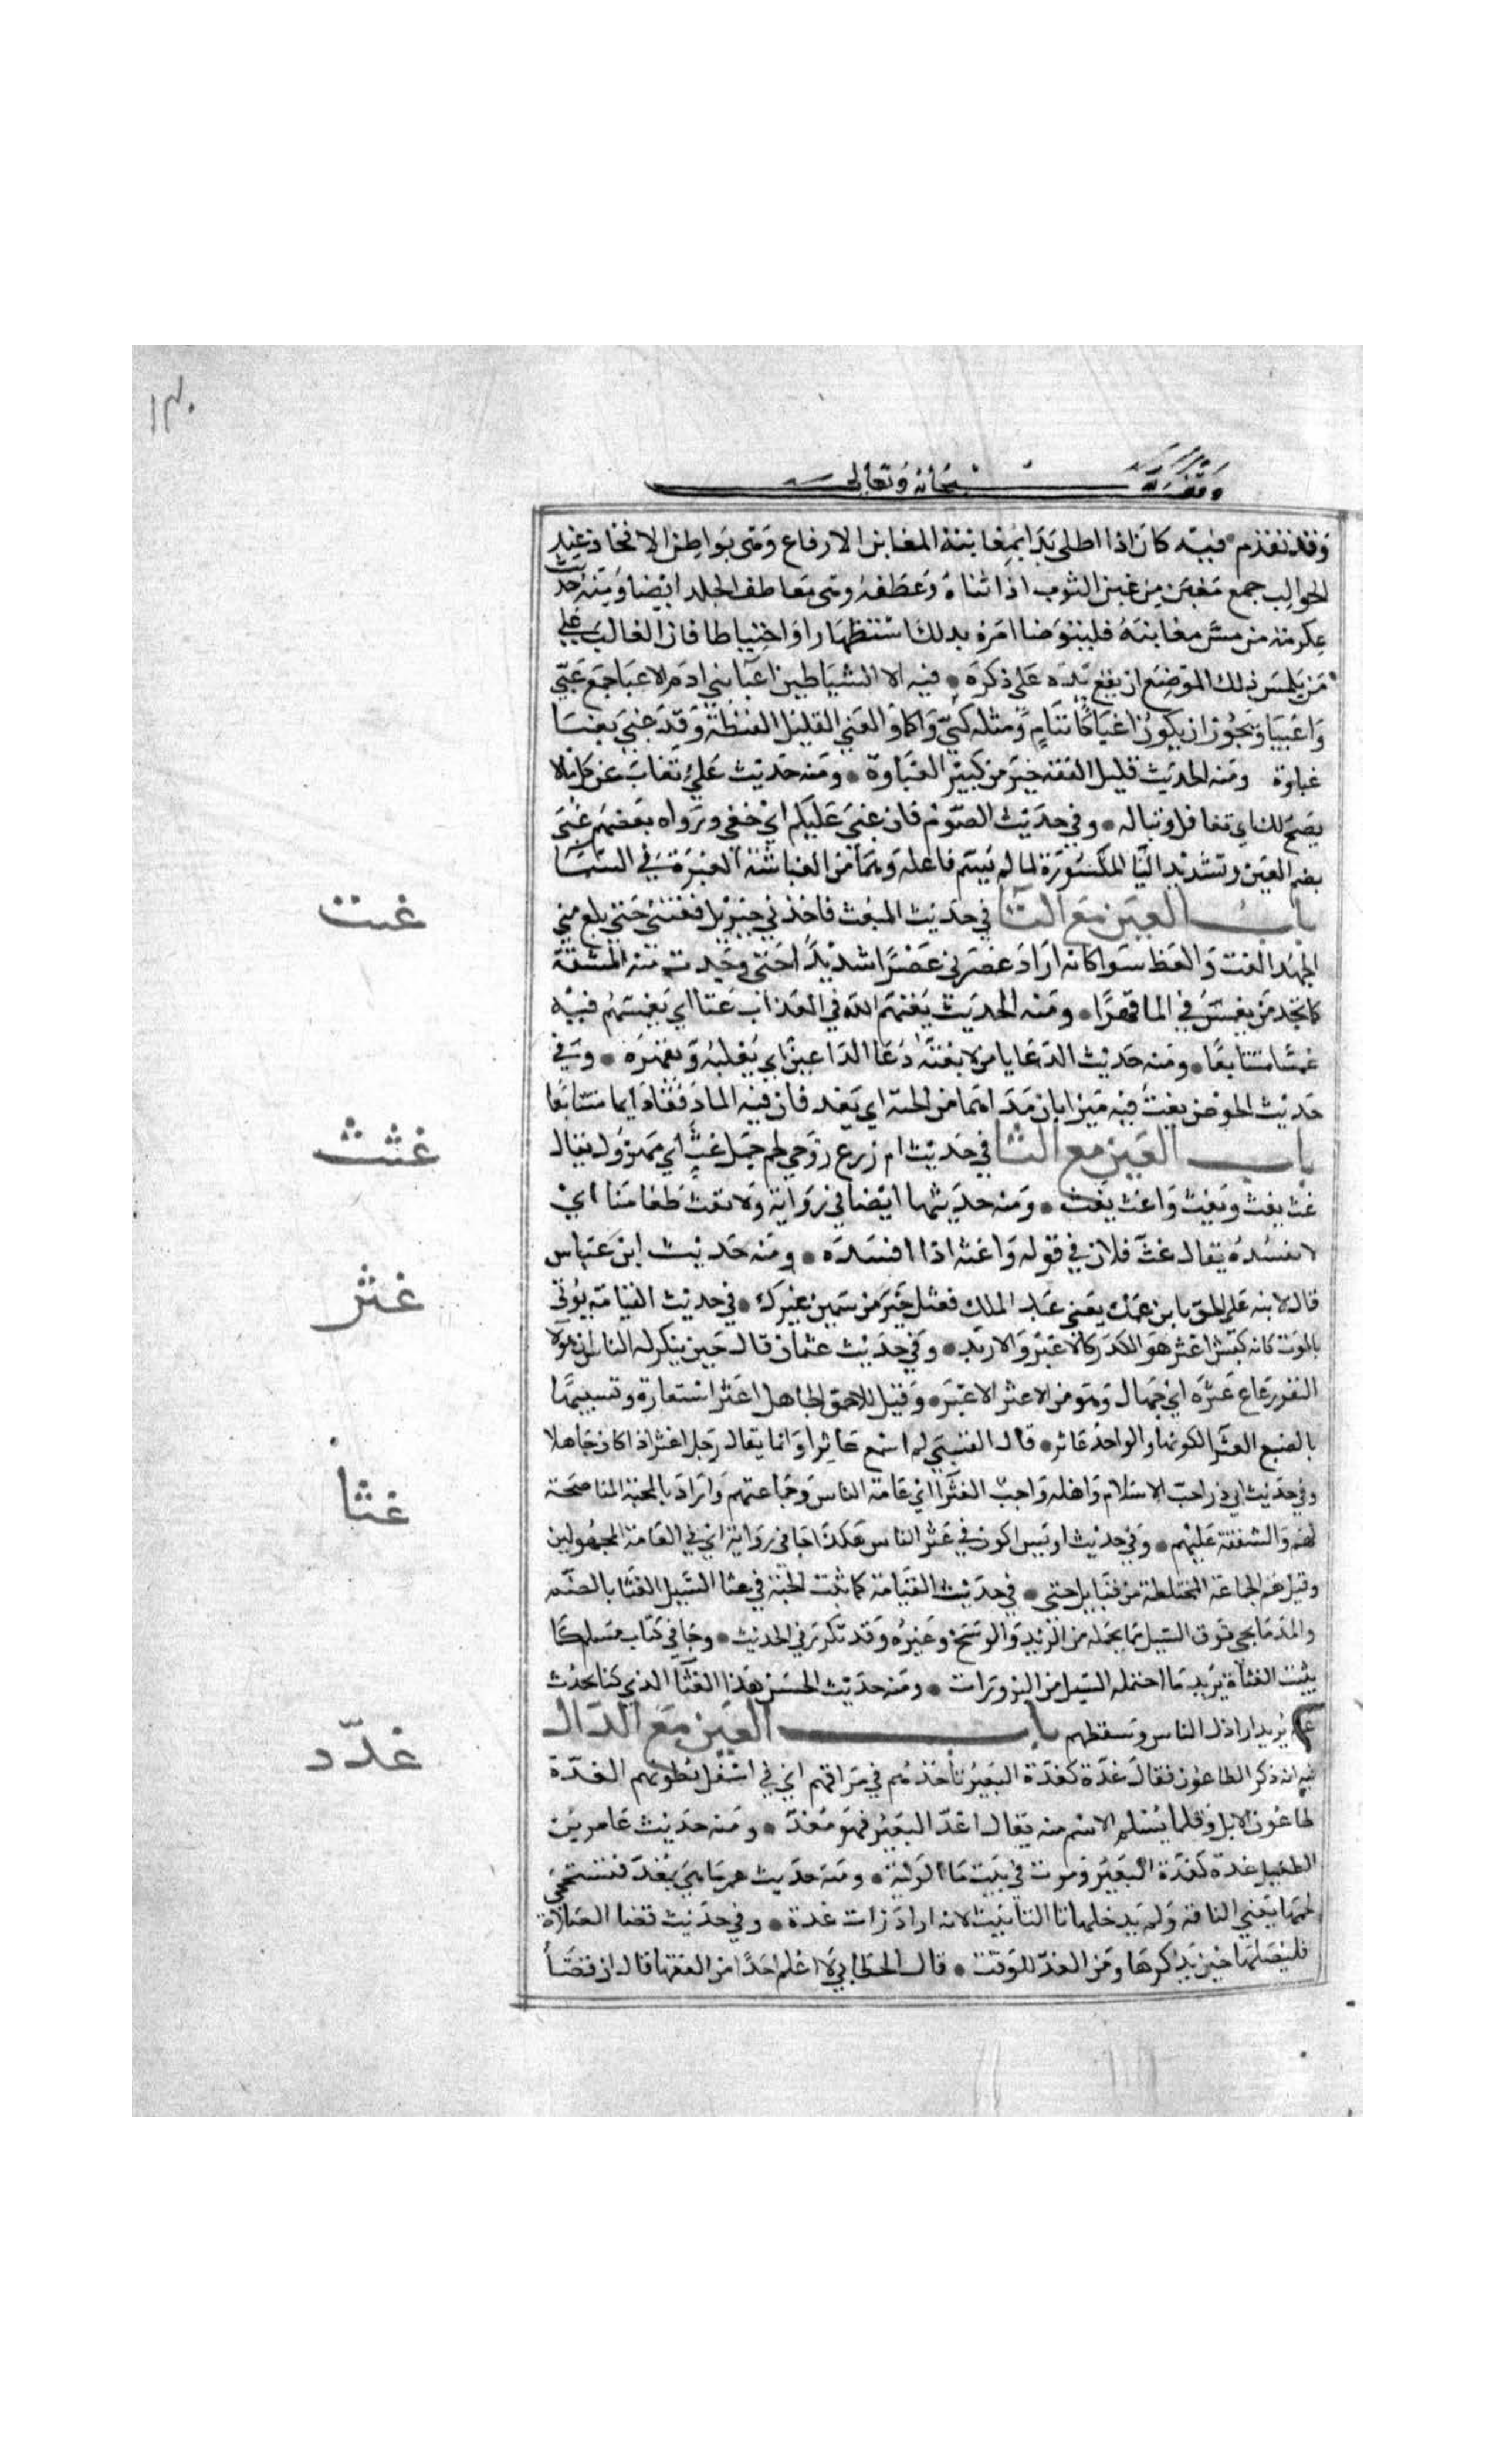 وقف لله سبحانه وتعالى
وقد تقدم فيه كان اذا اطلى بدا بمغابنه المغابن الارفاغ وهي بواطن الافخاذ عند
الحوالب جمع مغبن من غبن الثوب اذا ثناه وعطفه وهي معاطف الجلد ايضا ومنه حديث
عكرمة من مس مغابنه فليتوضا امره بذلك استظهارا واحتياطا فان الغالب على
من يلمس ذلك الموضع ان يقع يده على ذكره فيه الا الشياطين اغبا بني ادم الاغبا جمع غبي
واغبيا ويجوز ان يكون اغباء كايتام ومثله كمي واكما والغبي القليل الفطنة وقد غبي يغبا
غباوة ومنه الحديث قليل الفقه خير من كثير الغباوة ومنه حديث علي تغاب عن كل ما لا
يصح لك اي تغافل وتباله وفي حديث الصوم فان غبي عليكم اي خفي ورواه بعضهم غبي
بضم الغين وتشديد اليا المكسورة لما لم يسم فاعله وهما من الغبا شبه الغبرة في السما
باب الغين مع التا في حديث المبعث فاخذني جبريل فغتني حتى بلغ مني
الجهد الغت والغط سوا كانه اراد عصرني عصرا شديدا حتى وجدت منه المشقة
كما يجد من يغمس في الما قهرا ومنه الحديث يغتهم الله في العذاب غتا اي يغمسهم فيه
غمسا متتابعا ومنه حديث الدعا يا من لا يغته دعا الداعين اي يغلبه ويقهره وفي
حديث الحوض يغت فيه ميزابان مدادهما من الجنة اي يغد فان فيه الما دفقا دايما متتابعا
باب الغين مع الثا في حديث ام زرع زوجي لحم جمل غث اي مهزول يقال
غث يغث ويغث واغث يغث ومنه حديثها ايضا في رواية ولا تغث طعامنا اي
لا تفسده يقال غث فلان في قوله واغثه اذا افسده ومنه حديث ابن عباس
قال لابنه علي الحق بابن عمك يعني عبد الملك فغثك خير من سمين غيرك في حديث القيامة يوتى
بالموت كانه كبش اغثر هو الكدر كالاغبر والاربد وفي حديث عثمان قال حين ينكر له الناس ان هولا
النفر رعاع غثرة اي جهال وهو من الاغثر الاغبر وقيل للاحمق الجاهل اغثر استعارة وتشبيها
بالضبع الغثرا لكونها والواحد غاثر قال القتيبي لم اسمع غاثرا وانما يقال رجل اغثر اذا كان جاهلا
وفي حديث ابي ذر احب الاسلام واهله واحب الغثرا اي عامة الناس وجماعتهم واراد بالمحبة المناصحة
لهم والشفقة عليهم وفي حديث اويس اكون في غثر الناس هكذا جا في رواية اي في العامة المجهولين
وقيل هم الجماعة المختلطة من قبايل شتى في حديث القيامة كما تنبت الحبة في غثا السيل الغثا بالضم
والمد ما يجي فوق السيل مما يحمله من الزبد والوسخ وغيره وقد تكرر في الحديث وجا في كتاب مسلم كما
تنبت الغثاة يريد ما احتمله السيل من البزورات ومنه حديث الحسن هذا الغثا الذي كنا نحدث
عنه يريد اراذل الناس وسقطهم باب الغين مع الدال
فيه انه ذكر الطاعون فقال غدة كغدة البعير تاخذهم في مراقهم اي في اسفل بطونهم الغدة
طاعون الابل وقلما يسلم الاسم منه يقال اغد البعير فهو مغد ومنه حديث عامر بن
الطفيل غدة كغدة البعير وموت في بيت سلولية ومنه حديث عمر ما هي بمغد فيستحجي
لحمها يعني الناقة ولم يدخلها تا التانيث لانه اراد ذات غدة وفي حديث قضا الصلاة
فليصلها حين يذكرها ومن الغد للوقت قال الخطابي لا اعلم احدا من الفقها قال ان قضا
غتت
غثث
غثر
غثا
غدد